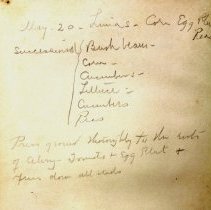 May - 20 - Limas - Corn Egg Pla
Peas
Successional Bush beans -
Corn -
Cucumbers -
Lettuce -
Cucumbers
Peas
Press ground thoroughly to the roots
of Celery - Tomato & Egg Plant &
firm down all seeds